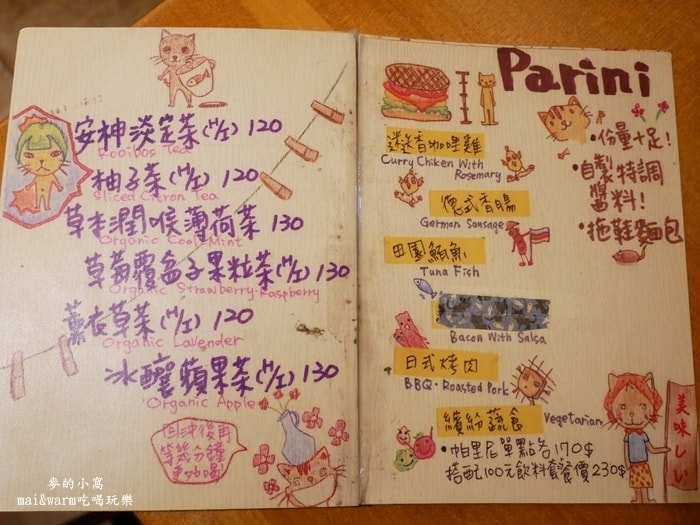 安神淡定茶(H/I) 120
Rooibos Tea
柚子茶(H/I) 120
Sliced Citron Tea
草本潤喉薄荷茶 130
Organic Cool Mint
草莓覆盆子果粒茶(H/I) 130
Organic Strawberry·Raspberry
薰衣草茶(H/I) 120
Organic Lavender
冰釀蘋果茶(H/I) 130
Organic Apple
回沖後再
等幾分鐘
更好喝
麥的小窩
mai&warm吃喝玩樂
Parini
迷迭香咖哩雞
Curry Chiken With
Rosemary
德式香腸
German Sausage
田園鮪魚
Tuna Fish
Bacon With Salsa
日式烤肉
BBQ·Roasted Pork
繽紛蔬食
Vegetarian
•帕里尼單點各170$
搭配100元飲料套餐價230$
•份量十足!
•自製特調
醬料!
•拖鞋麵包
美味しい